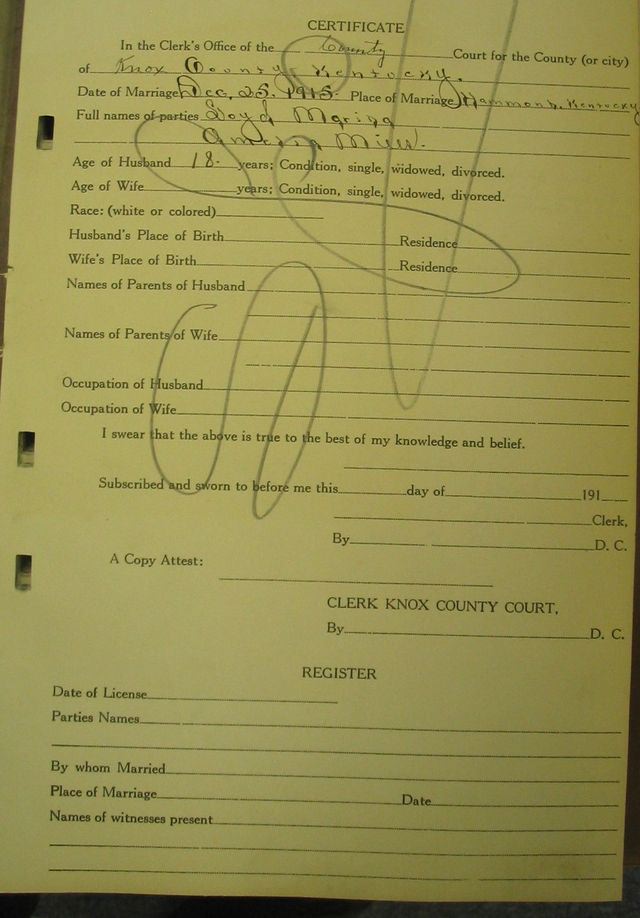 CERTIFICATE
In the Clerk's Office of the County Court for the County (or city)
of Knox County Kentucky.
Date of Marriage Dec, 25, 1915. Place of Marriage Hammond, Kentucky
Full names of parties
America Mills.
Age of Husband 18. years; Condition, single, widowed, divorced.
Age of Wife years; Condition, single, widowed, divorced.
Race: (white or colored)
Husband's Place of Birth Residence
Wife's Place of Birth Residence
Names of Parents of Husband
Names of Parents of Wife
Occupation of Husband
Occupation of Wife
I swear that the above is true to the best of my knowledge and belief.
Subscribed and sworn to before me this day of 191
Clerk,
By D. C.
A Copy Attest:
CLERK KNOX COUNTY COURT,
By D. C.
REGISTER
Date of License
Parties Names
By whom Married
Place of Marriage Date
Names of witnesses present